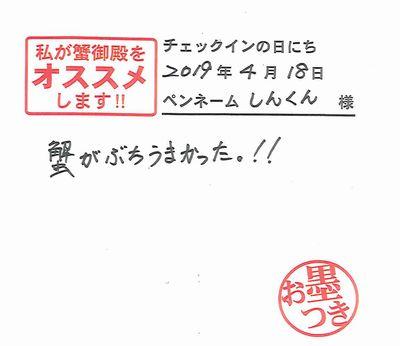 私が蟹御殿を
オススメ
します!!
チェックインの日にち
2019年4月18日
ペンネーム しんくん 様
蟹がぶちうまかった。!!
お墨
つき